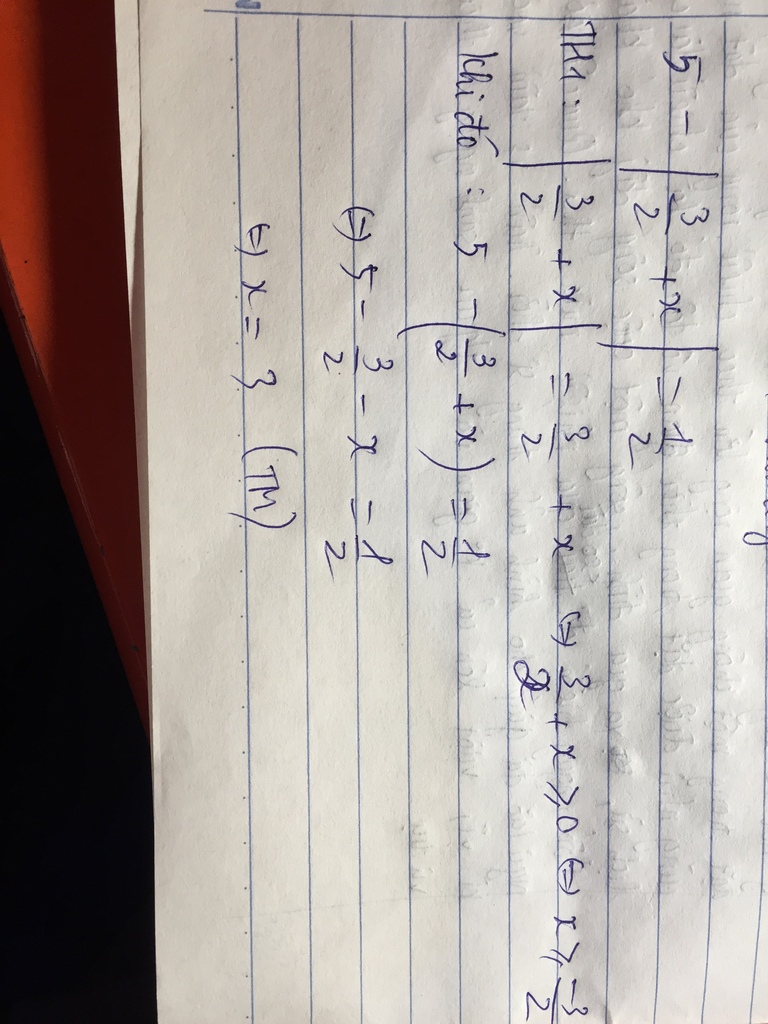 5 - |3/2 + x| = 1/2
TH1: |3/2 + x| = 3/2 + x ⇔ 3/2 + x ⩾ 0 ⇔ x ⩾ -3/2
Khi đó : 5 - (3/2 + x) = 1/2
⇔ 5 - 3/2 - x = 1/2
⇔ x = 3 (TM)